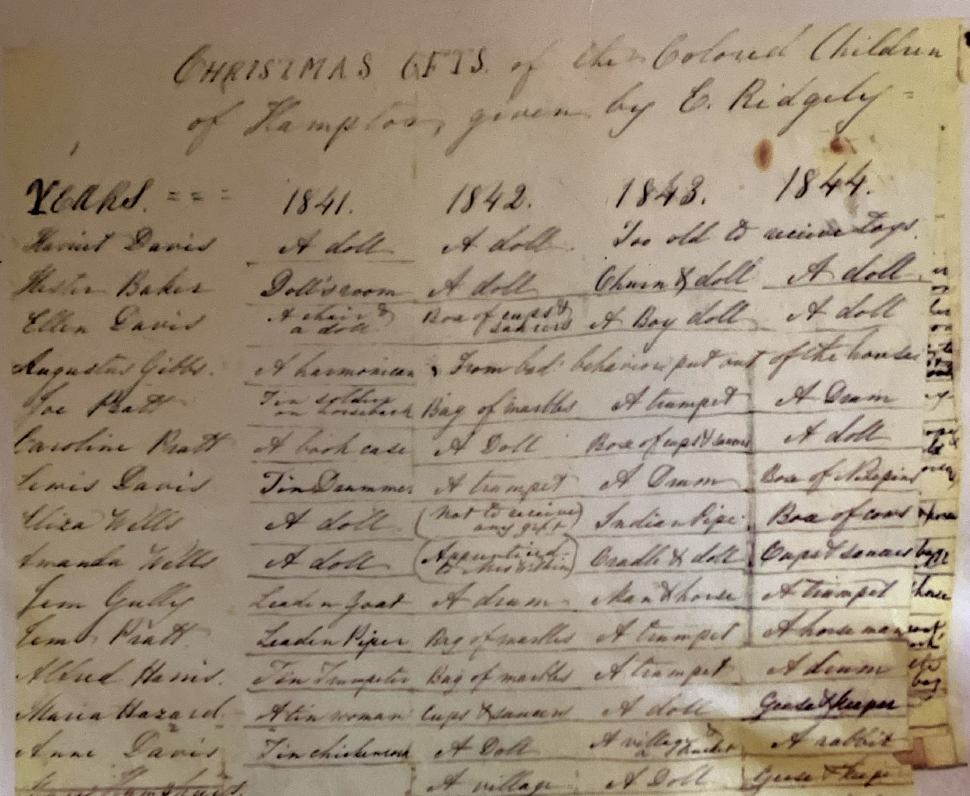 CHRISTMAS GFTS. of the Colored Children
of Hampton, given by E. Ridgely =
YEARS. = = = 1841. 1842. 1843. 1844.
Harriet Davis A doll A doll. Too old to receive Toys.
Hester Baker Doll's room A doll Churn & doll A doll
Ellen Davis A chair & a doll Box of cups & saucers A Boy doll A doll
Augustus Gibbs. A harmonican From bad behavior put out of the house
Joe Pratt Tin soldier on horseback Bag of marbles A trumpet A Drum
Caroline Pratt A book case A Doll Box of cups & saucers A doll
Lewis Davis Tin Drummer A trumpet A Drum Box of Ninepins
Eliza Wells A doll (Not to receive any gift) Indian Pipe. Box of cows
Amanda Wells A doll Cradle & doll Cups & saucers
Jem Gully Leaden Goat A drum Man & horse A trumpet
Jem Pratt Leaden Piper Bag of marbles A trumpet A horse man
Alfred Harris. Tin Trumpeter Bag of marbles A trumpet A drum
Maria Hazard A tin woman Cups & saucers A doll Geese & keeper
Anne Davis Tin chickencoop A Doll A village A rabbit
A village A Doll Geese &